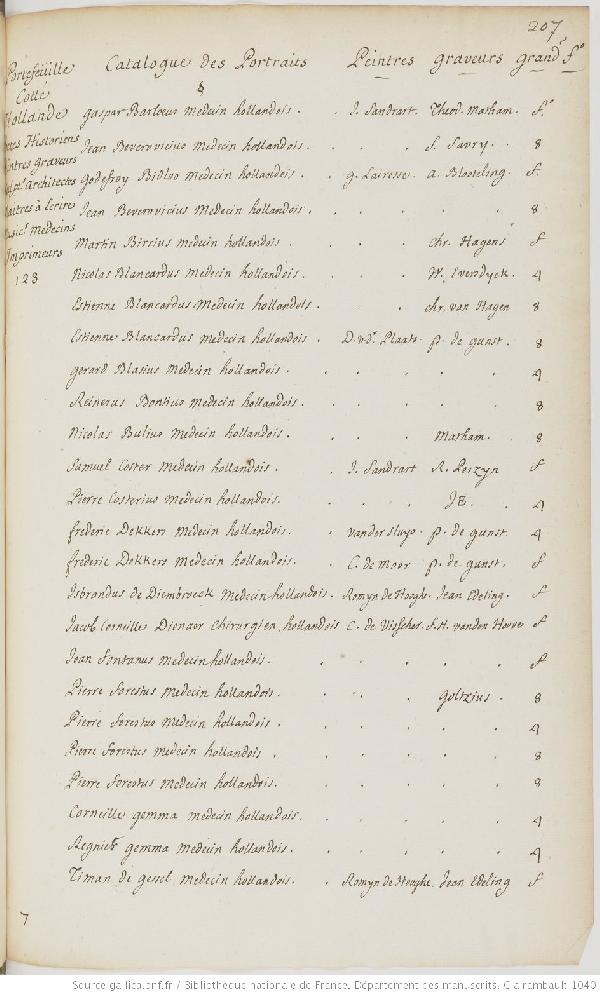 207
Portefeüille
Cotte
Hollande
Historiens
graveurs
Architectes
Maitres à Ecrire
medecins
Imprimeurs
123
Catalogue des Portraits Peintres graveurs grand.r f.o
gaspar Barlœus medecin hollandois . . J. Sandrart. Theod. Matham. f.o
Jean Beverovicius medecin hollandois . . . . f. Savry . . 8
Godefroy Bidloo medecin hollandois . . g. Lairesse . a. Blooteling . f.
Jean Beverovicius medecin hollandois . . . . . . 8
Martin Birsius medecin hollandois . . . . chr. Hagens f
Nicolas Blancardus medecin hollandois . . . . W. Evendyck . 4
Estienne Blancardus Medecin hollandois . . . chr. van Hagen 8
Estienne Blancardus medecin hollandois . D. v.d. Plaats . p. de gunst . 8
gerard Blasius medecin hollandois . . . . . . 4
Reinerus Bontius medecin hollandois . . . . . . 8
Nicolas Bulius medecin hollandois . . . . Matham . . 8
Samuel Coster medecin hollandois . . J. Sandrart R. Perzyn f
Pierre Costerius medecin hollandois . . . . JB . . 4
frederic Dekkers medecin hollandois . . vander Sluys . p. de gunst . 4
frederic Dekkers medecin hollandois . . C. de moor . p. de gunst . f
Isbrandus de Diembroeck medecin hollandois . Romyn de Hooghe. Jean Edeling . f
Jacob Corneille Dienaer Chirurgien hollandois C. de Visscher . f. H. vanden Hovve f
Jean fontanus medecin hollandois . . . . . . f
Pierre forestus medecin hollandois . . . . goltzius . 8
Pierre forestus medecin hollandois . . . . . . 4
Pierre forestus medecin hollandois . . . . . . 8
Pierre forestus medecin hollandois . . . . . . 8
Corneille gemma medecin hollandois . . . . . . 4
Regnier gemma medecin hollandois . . . . . . 4
Timan de gessel medecin hollandois . . Romyn de Hooghe . Jean Edeling f
7
Source gallica.bnf.fr / Bibliothèque nationale de France. Département des manuscrits. Clairambault 1040